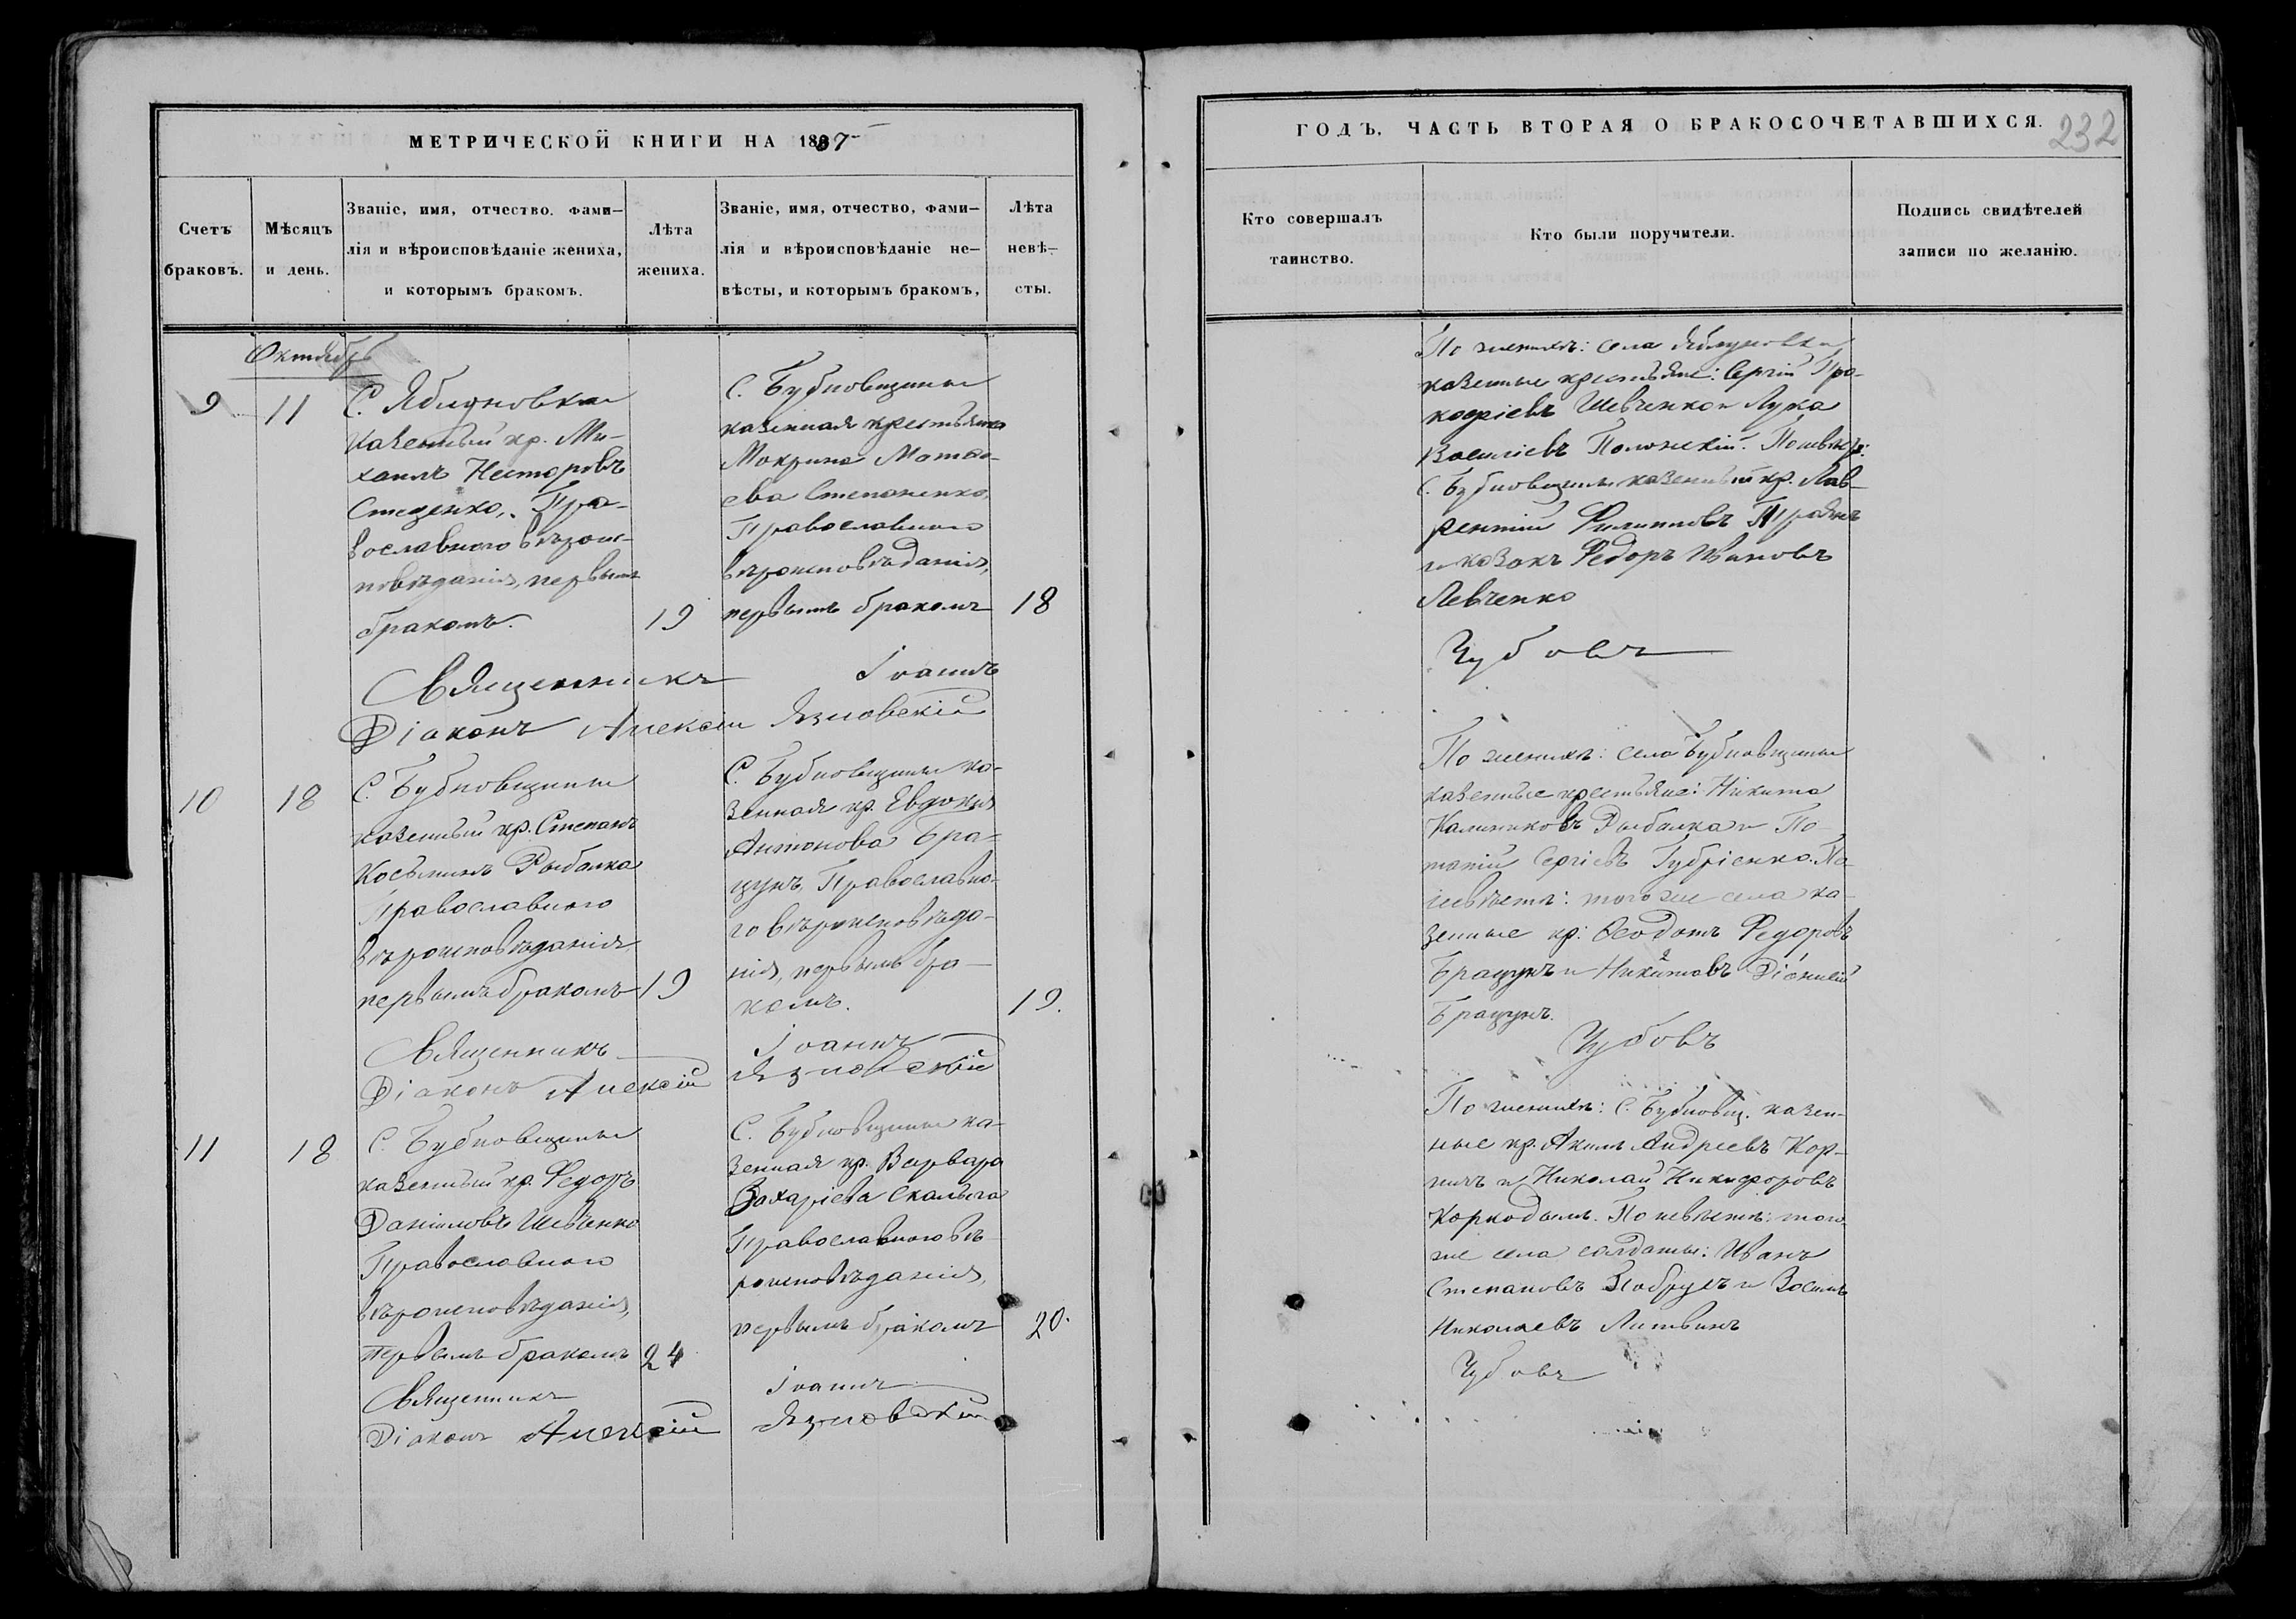 МЕТРИЧЕСКОЙ КНИГИ НА 1867
Счетъ
браковъ.
Мѣсяцъ
и день.
Званіе, имя, отчество. фами-
лія и вѣроисповѣданіе жениха,
и которымъ бракомъ.
Лѣта
жениха.
Званіе, имя, отчество, фами-
лія и вѣроисповѣданіе не-
вѣсты, и которымъ бракомъ,
Лѣта
невѣ-
сты.
Октябрь
9
11
С. Яблуновки
казенный кр. Ми-
хаилъ Несторовъ
Стеценко, Пра-
вославного вѣрои-
повѣданія, первымъ
бракомъ.
19
С. Бубновщины
казенная крестьянка
Мокрина Матѳе-
ева Степаненко,
Православного
вѣроисповѣданія,
первымъ бракомъ
18
Священникъ Іоаннъ
Діаконъ Алексій Язловскій
10
18
С. Бубновщины
казенный кр. Степанъ
Косьминъ Рыбалка
Православного
вѣроисповѣданія
первымъ бракомъ
19
С. Бубновщины ка-
зенная кр. Евдокія
Антонова Бра-
цунъ, Православно-
го вѣроисповѣда-
нія, первымъ бра-
комъ.
19.
Священникъ Іоаннъ
Діаконъ Алексій Язловскій
11
18
С. Бубновщины
казенный кр. Федоръ
Даніиловъ Шевченко
Православного
вѣроисповѣданія,
первымъ бракомъ
24
С. Бубновщины ка-
зенная кр. Варвара
Захаріева Скалыга
Православного вѣ-
роисповѣданія,
первымъ бракомъ
20.
Священникъ Іоаннъ
Діаконъ Алексій Язловскій
ГОДЪ, ЧАСТЬ ВТОРАЯ О БРАКОСОЧЕТАВШИХСЯ.
232
Кто совершалъ
таинство.
Кто были поручители.
Подпись свидѣтелей
записи по желанію.
По женихѣ: села Яблуновки
казенные крестьяне: Сергій Про-
кофіевъ Шевченко и Лука
Василіевъ Положскій. По невѣстѣ:
С. Бубновщины казенный кр. Лав-
рентій Филиповъ
и козакъ Федоръ Ивановъ
Левченко
Чубовъ
По женихѣ: села Бубновщины
казенные крестьяне: Никита
Калиниковъ Рыбалка и По-
тапій Сергіевъ Губріенко. По
невѣстѣ: того же села ка-
зенные кр: Ѳеодотъ Федоровъ
Брацунъ и Никитовъ Діонисій
Брацунъ.
Чубовъ
По женихѣ: С. Бубновщ. казен-
ные кр. Акимъ Андреевъ Кор-
ничъ и Николай Никифоровъ
Коркодымъ. По невѣстѣ: того-
же села солдаты: Иванъ
Степановъ и
Николаевъ Литвинъ
Чубовъ